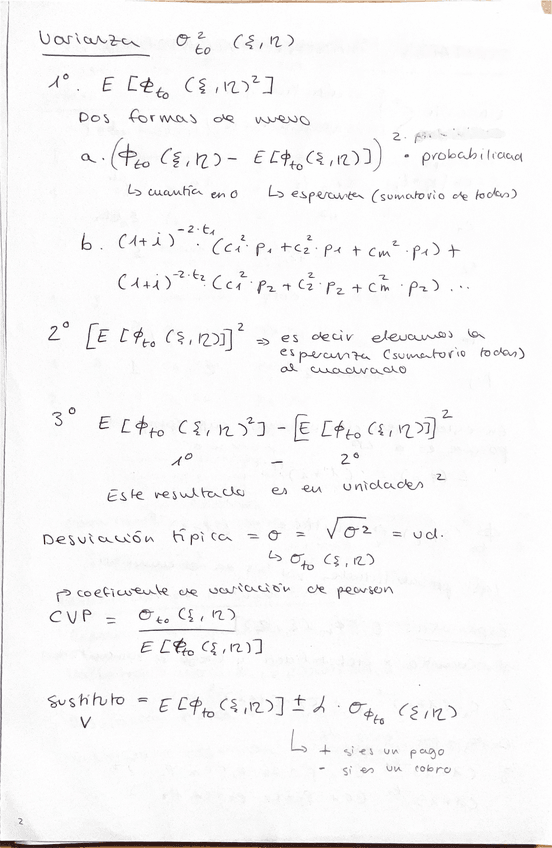 Varianza σ²to (ξ, η)
1º. E [ϕto (ξ, η)²]
Dos formas de nuevo
a. (ϕto (ξ, η) - E[ϕto (ξ, η)])² · probabilidad
↳ cuantía en 0 ↳ esperanza (sumatorio de todas)
b. (1+i)^-2·t1 · (c1² · p1 + c2² · p1 + cm² · p1) +
(1+i)^-2·t2 · (c1² · p2 + c2² · p2 + cm² · p2) ...
2º [E [ϕto (ξ, η)]]² ⇒ es decir elevamos la
esperanza (sumatorio todas)
al cuadrado
3º E [ϕto (ξ, η)²] - [E [ϕto (ξ, η)]]²
1º - 2º
Este resultado es en unidades ²
Desviación típica = σ = √σ² = ud.
↳ σto (ξ, η)
↱ coeficiente de variación de pearson
CVP = σto (ξ, η)
E [ϕto (ξ, η)]
Sustituto = E [ϕto (ξ, η)] ± λ · σϕto (ξ, η)
V
↳ + si es un pago
- si es un cobro
2